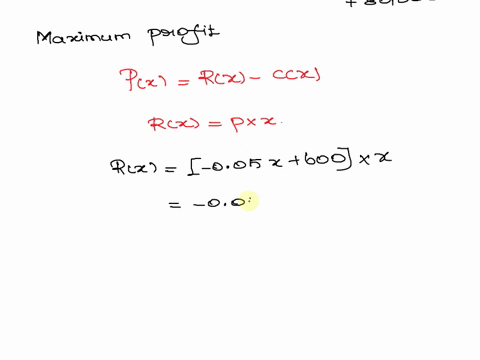 Maximum profit
P(x) = R(x) - C(x)
R(x) = p × x.
R(x) = [-0.05 x + 600] × x
= -0.0